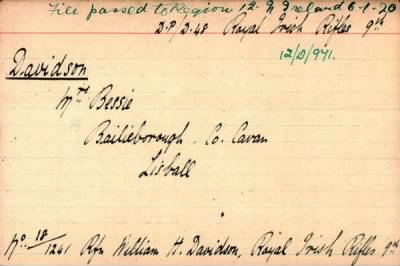 File passed to Region 12. N Ireland 6-1-20
D.P/D.48 Royal Irish Rifles 9th
12/D/971.
Davidson
Mrs Bessie
Bailieborough. Co. Cavan
Lisball
No 18/1241 Rfn William H. Davidson, Royal Irish Rifles 9th